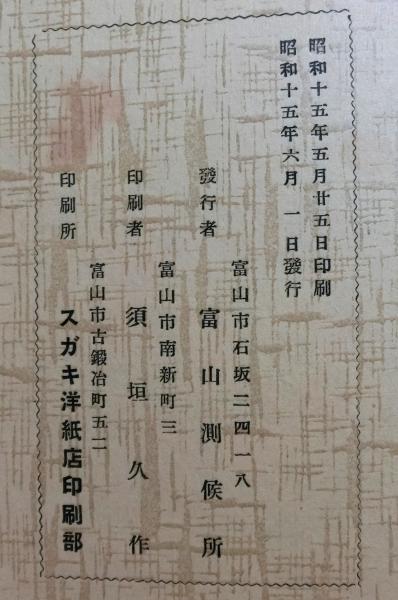 昭和十五年五月廿五日印刷
昭和十五年六月一日發行
富山市石坂二四一八
發行者 富山測候所
富山市南新町三
印刷者 須垣久作
富山市古鍛冶町五二
印刷所 スガキ洋紙店印刷部